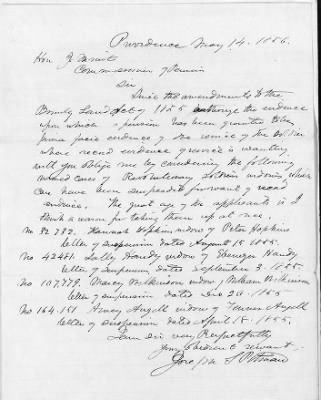 Providence May 14. 1856.
Hon. J. Minot
Commissioner of Pensions
Sir
Since the amendments to the
Bounty Land Act of 1855 authorize the evidence
upon which a pension has been granted to be
prima facie evidence of the service of the soldier
where record evidence of service is wanting
will you oblige me by considering the following
named cases of Revolutionary Soldiers widows whose
case have been suspended for want of record
evidence. The great age of the applicants is I
think a reason for taking them up at once.
No 32.782. Hannah Hopkins widow of Peter Hopkins
letter of suspension dated August 15 1855.
No 42481. Sally Handy widow of Ebenezer Handy
letter of suspension dated September 3. 1855.
No 107,779. Marcy Wilkinson widow of William Wilkinson
letter of suspension dated Dec 20. 1855
No 164.151 Amey Angell widow of Angell
letter of suspension dated April 18. 1855.
I am Sir very Respectfully
your obedient servant
Joseph S Pitman